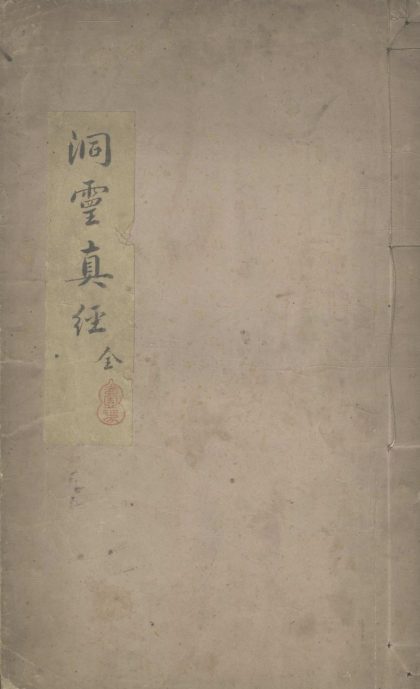 洞靈真經全